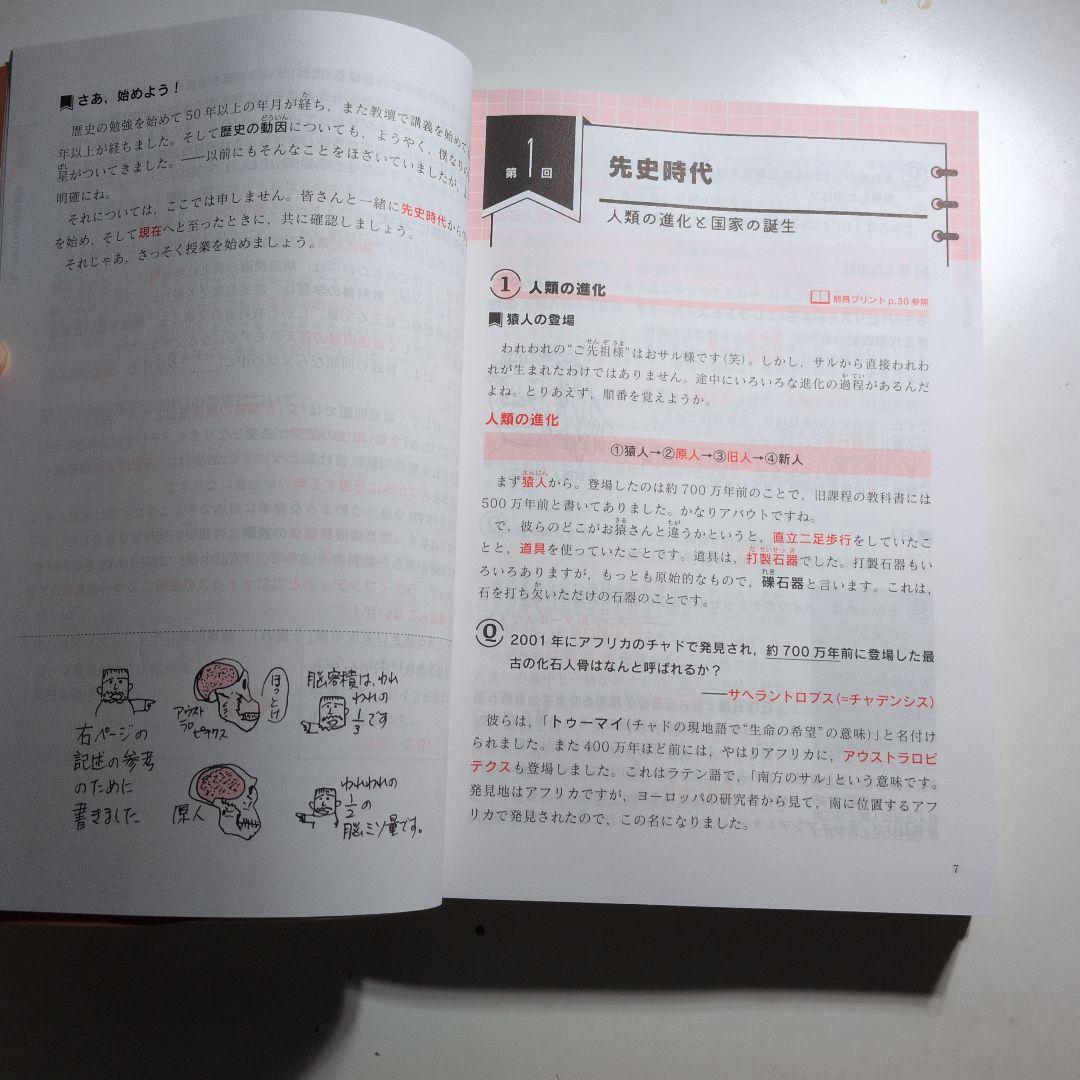 さあ，始めよう！
歴史の勉強を始めて50年以上の年月が経ち，また教壇で講義を始めて
年以上が経ちました。そして歴史の動因についても，ようやく，僕なり
星がついてきました。――以前にもそんなことをほざいていましたが，
明確にね。
それについては，ここでは申しません。皆さんと一緒に先史時代から
を始め，そして現在へと至ったときに，共に確認しましょう。
それじゃあ，さっそく授業を始めましょう。
右ページの
記述の参考
のために
書きました
アウスト
ラロ
ピテクス
ほっとけ
脳容積は，われ
われの
1/3です
原人
われわれの
1/2の
脳ミソ量です。
第1回
先史時代
人類の進化と国家の誕生
1 人類の進化
別冊プリントp.30参照
猿人の登場
われわれの“ご先祖様”はおサル様です(笑)。しかし，サルから直接われわ
れが生まれたわけではありません。途中にいろいろな進化の過程があるんだ
よね。とりあえず，順番を覚えようか。
人類の進化
①猿人→②原人→③旧人→④新人
まず猿人から。登場したのは約700万年前のことで，旧課程の教科書には
500万年前と書いてありました。かなりアバウトですね。
で，彼らのどこがお猿さんと違うかというと，直立二足歩行をしていたこ
とと，道具を使っていたことです。道具は，打製石器でした。打製石器もい
ろいろありますが，もっとも原始的なもので，礫石器と言います。これは，
石を打ち欠いただけの石器のことです。
Q 2001年にアフリカのチャドで発見され，約700万年前に登場した最
古の化石人骨はなんと呼ばれるか？
――サヘラントロプス(=チャデンシス)
彼らは，「トゥーマイ(チャドの現地語で“生命の希望”の意味)」と名付け
られました。また400万年ほど前には，やはりアフリカに，アウストラロピ
テクスも登場しました。これはラテン語で，「南方のサル」という意味です。
発見地はアフリカですが，ヨーロッパの研究者から見て，南に位置するアフ
リカで発見されたので，この名になりました。
7